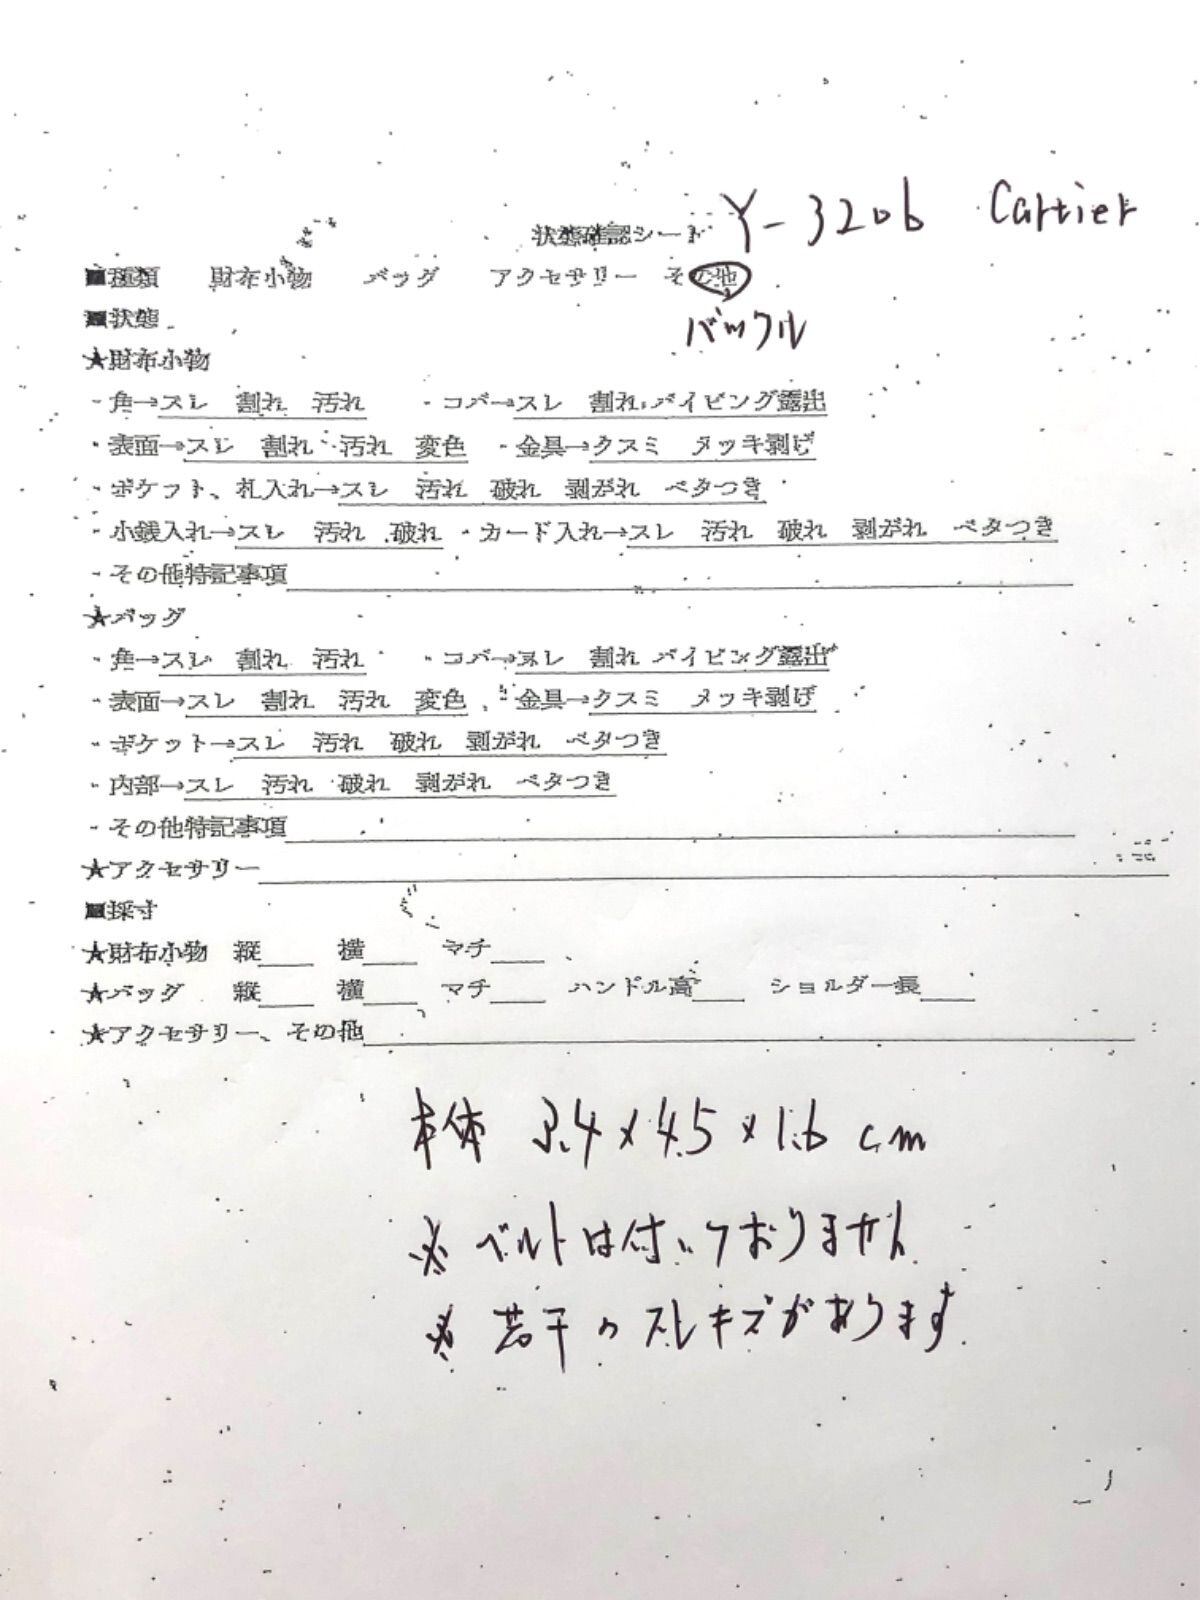 状態確認シート Y-3206 Cartier
■種類 財布小物 バッグ アクセサリー その他
バックル
■状態
★財布小物
・角→スレ 割れ 汚れ ・コバ→スレ 割れ パイピング露出
・表面→スレ 割れ 汚れ 変色 ・金具→クスミ メッキ剥げ
・ポケット、札入れ→スレ 汚れ 破れ 剥がれ ベタつき
・小銭入れ→スレ 汚れ 破れ ・カード入れ→スレ 汚れ 破れ 剥がれ ベタつき
・その他特記事項
★バッグ
・角→スレ 割れ 汚れ ・コバ→スレ 割れ パイピング露出
・表面→スレ 割れ 汚れ 変色 ・金具→クスミ メッキ剥げ
・ポケット→スレ 汚れ 破れ 剥がれ ベタつき
・内部→スレ 汚れ 破れ 剥がれ ベタつき
・その他特記事項
★アクセサリー
■採寸
★財布小物 縦 横 マチ
★バッグ 縦 横 マチ ハンドル高 ショルダー長
★アクセサリー、その他
本体 3.4×4.5×1.6 cm
※ベルトは付いておりません
※若干のスレキズがあります